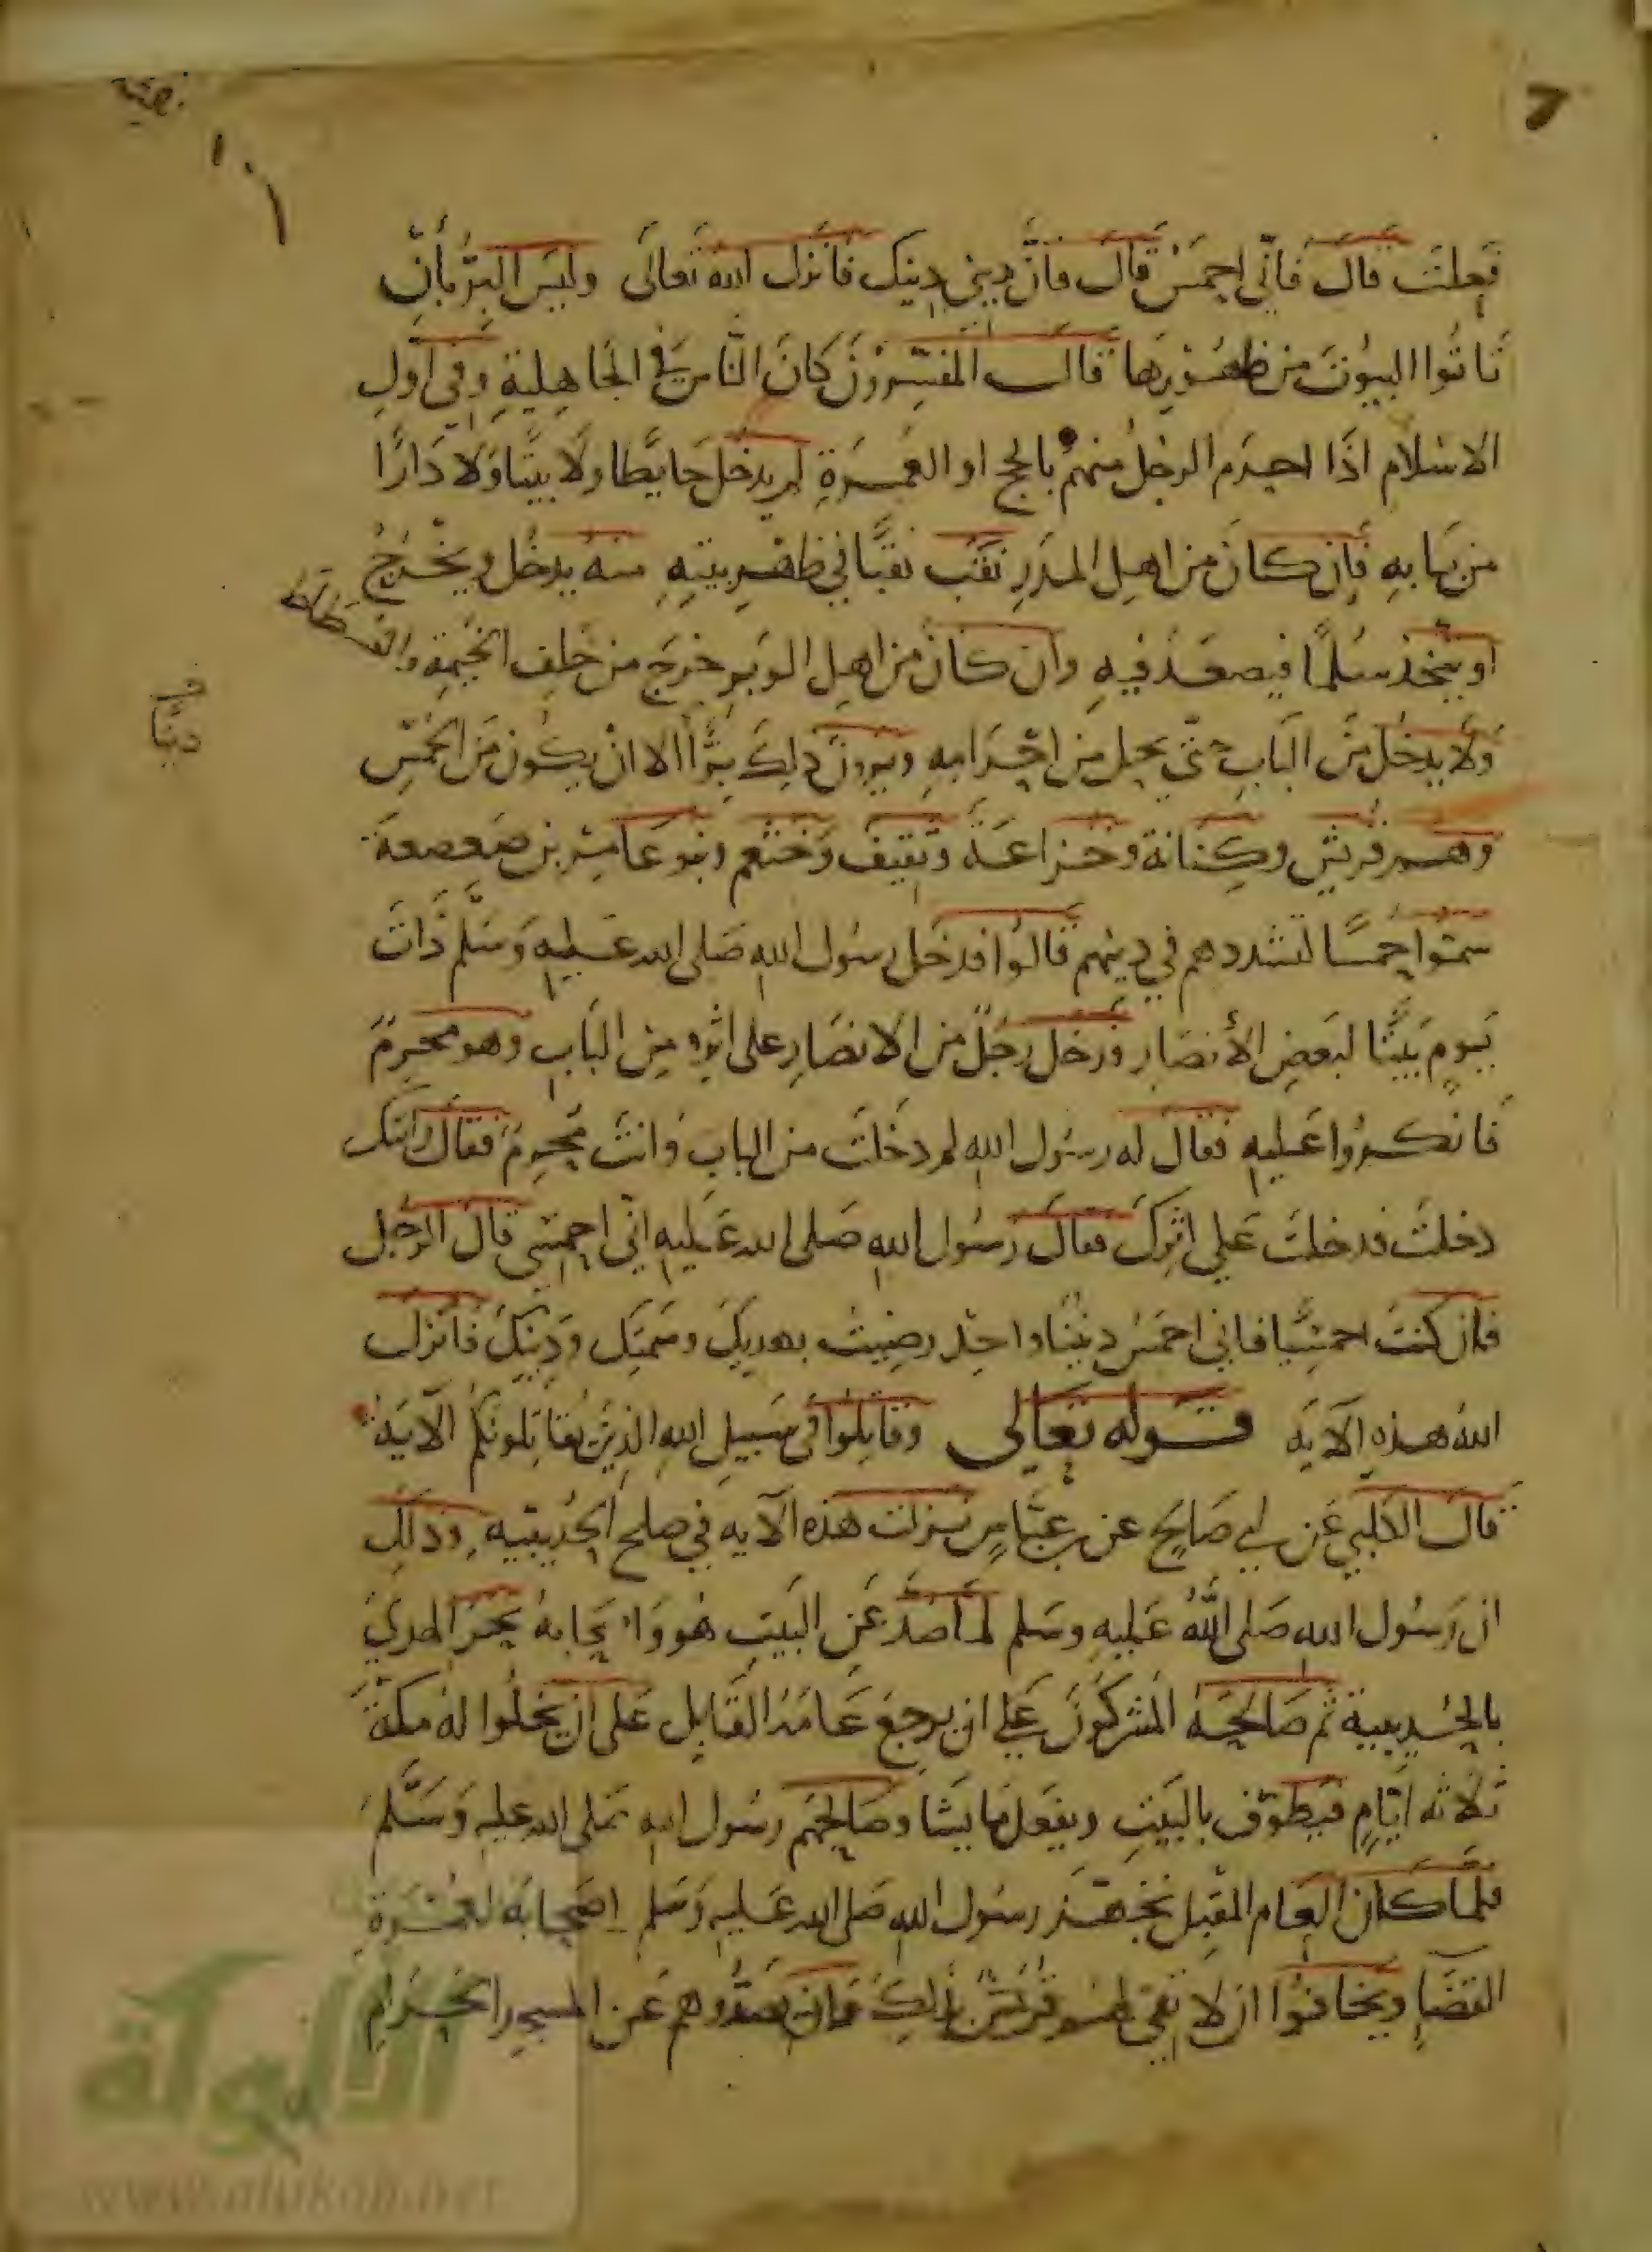 فعلت قال فاني احمس قال فان ديني دينك فانزل الله تعالى وليس البر بأن
تاتوا البيوت من ظهورها قال المفسرون كان الناس في الجاهلية وفي اول
الاسلام اذا احرم الرجل منهم بالحج او العمرة لم يدخل حايطا ولا بيتا ولا دارا
من بابه فإن كان من اهل المدر نقب نقبا في ظهر بيته منه يدخل ويخرج
او يتخذ سلما فيصعد فيه وان كان من اهل الوبر خرج من خلف الخيمة والفسطاط
ولا يدخل من الباب حتى يحل من احرامه ويرون ذلك برا الا ان يكون من الحمس
وهم قريش وكنانة وخزاعة وثقيف وخثعم وبنو عامر بن صعصعة
سموا حمسا لتشددهم في دينهم قالوا فدخل رسول الله صلى الله عليه وسلم ذات
يوم بيتا لبعض الأنصار ودخل رجل من الانصار على اثره من الباب وهو محرم
فانكروا عليه فقال له رسول الله لم دخلت من الباب وانت محرم فقال رايتك
دخلت فدخلت على اثرك فقال رسول الله صلى الله عليه اني احمسي قال الرجل
فان كنت احمسيا فاني احمس ديننا واحد رضيت بهديك وسمتك ودينك فانزل
الله هذه الآية قوله تعالى وقاتلوا في سبيل الله الذين يقاتلونكم الآية
قال الكلبي عن ابي صالح عن ابن عباس نزلت هذه الآيه في صلح الحديبيه وذلك
ان رسول الله صلى الله عليه وسلم لما صد عن البيت هو واصحابه نحر الهدي
بالحديبية ثم صالحه المشركون على ان يرجع عامه القابل على ان يخلوا له مكة
ثلاثه ايام فيطوف بالبيت ويفعل ما يشا وصالحهم رسول الله صلى الله عليه وسلم
فلما كان العام المقبل تجهز رسول الله صلى الله عليه وسلم اصحابه لعمرة
القضا وخافوا ان لا تفي لهم قريش بذلك وان يصدوهم عن المسجد الحرام
دينا
الألوكة
www.alukah.net